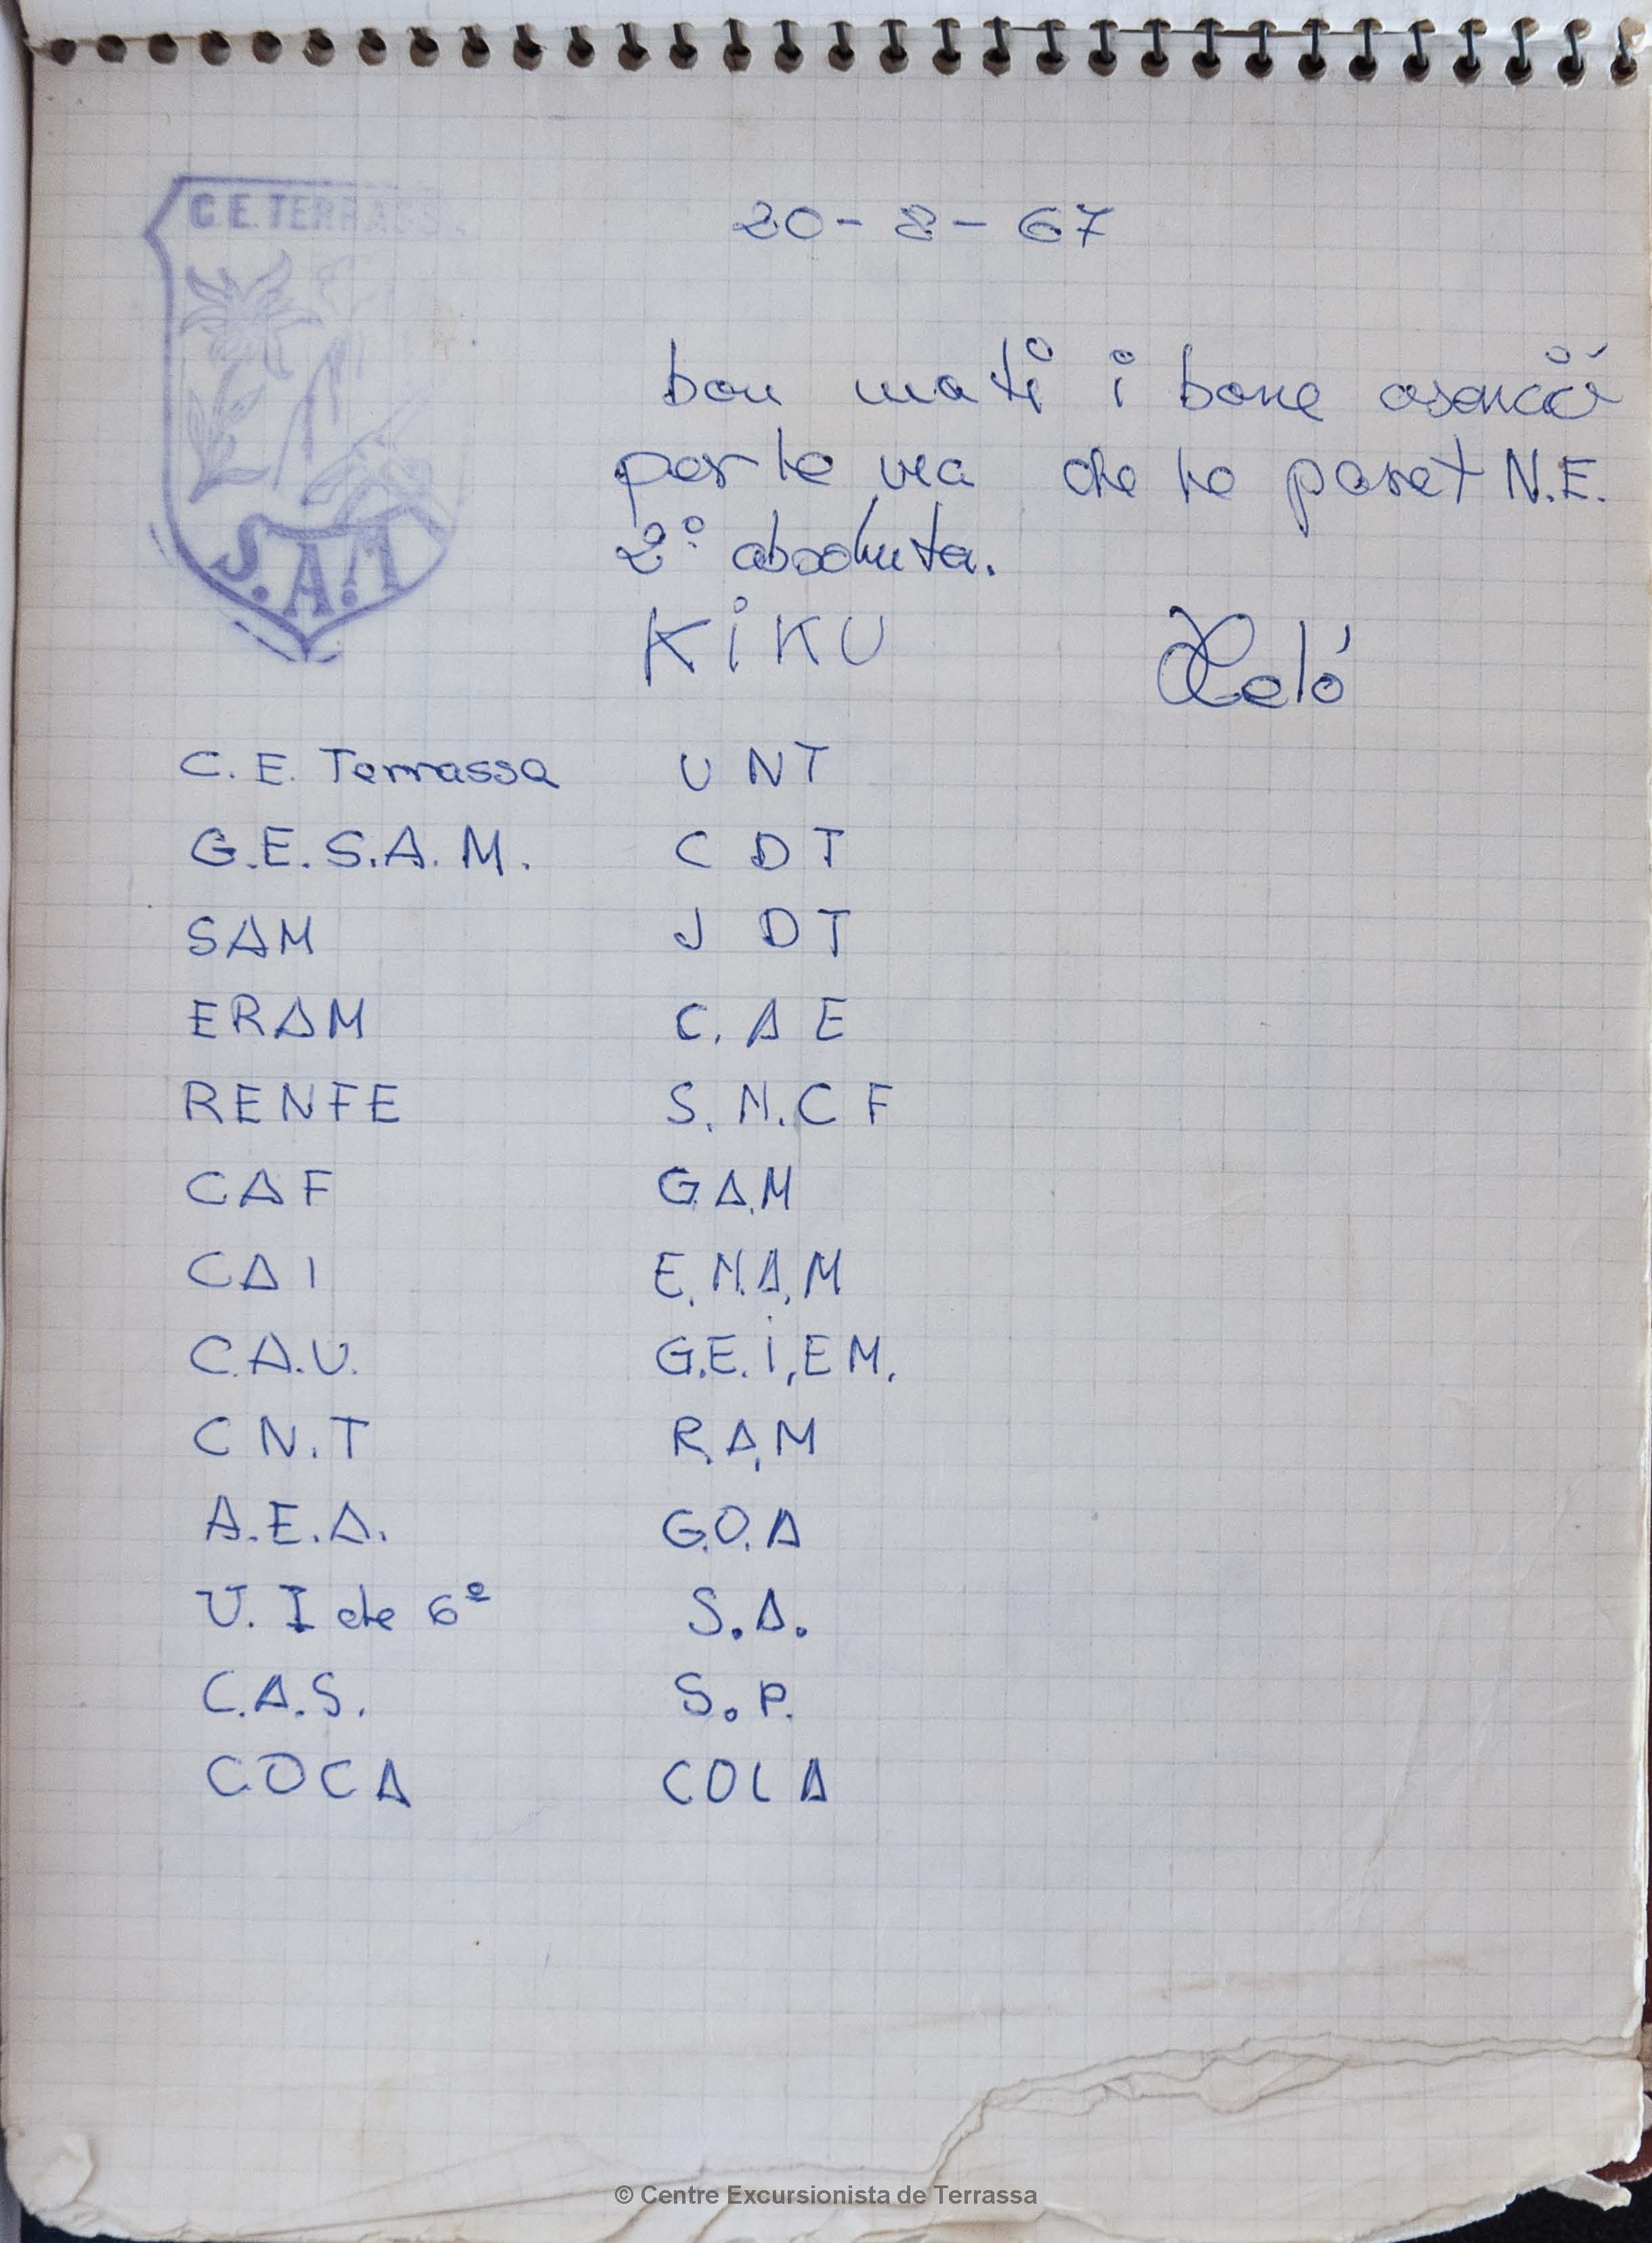 C.E. TERRASS
S.A.M
20-8-67
bon matí i bona asenció
per la via de la paret N.E.
2º absoluta.
KiKU
Xeló
C. E. Terrassa UNT
G.E.S.A.M. CDT
SAM JDT
ERAM C.AE
RENFE S.N.CF
CAF GA.M
CAI E.N.A.M
C.A.U. G.E.i.EM.
CN.T R.A.M
A.E.A. G.O.A
U. I de 6º S.A.
C.A.S. S.P.
COCA COLA
© Centre Excursionista de Terrassa